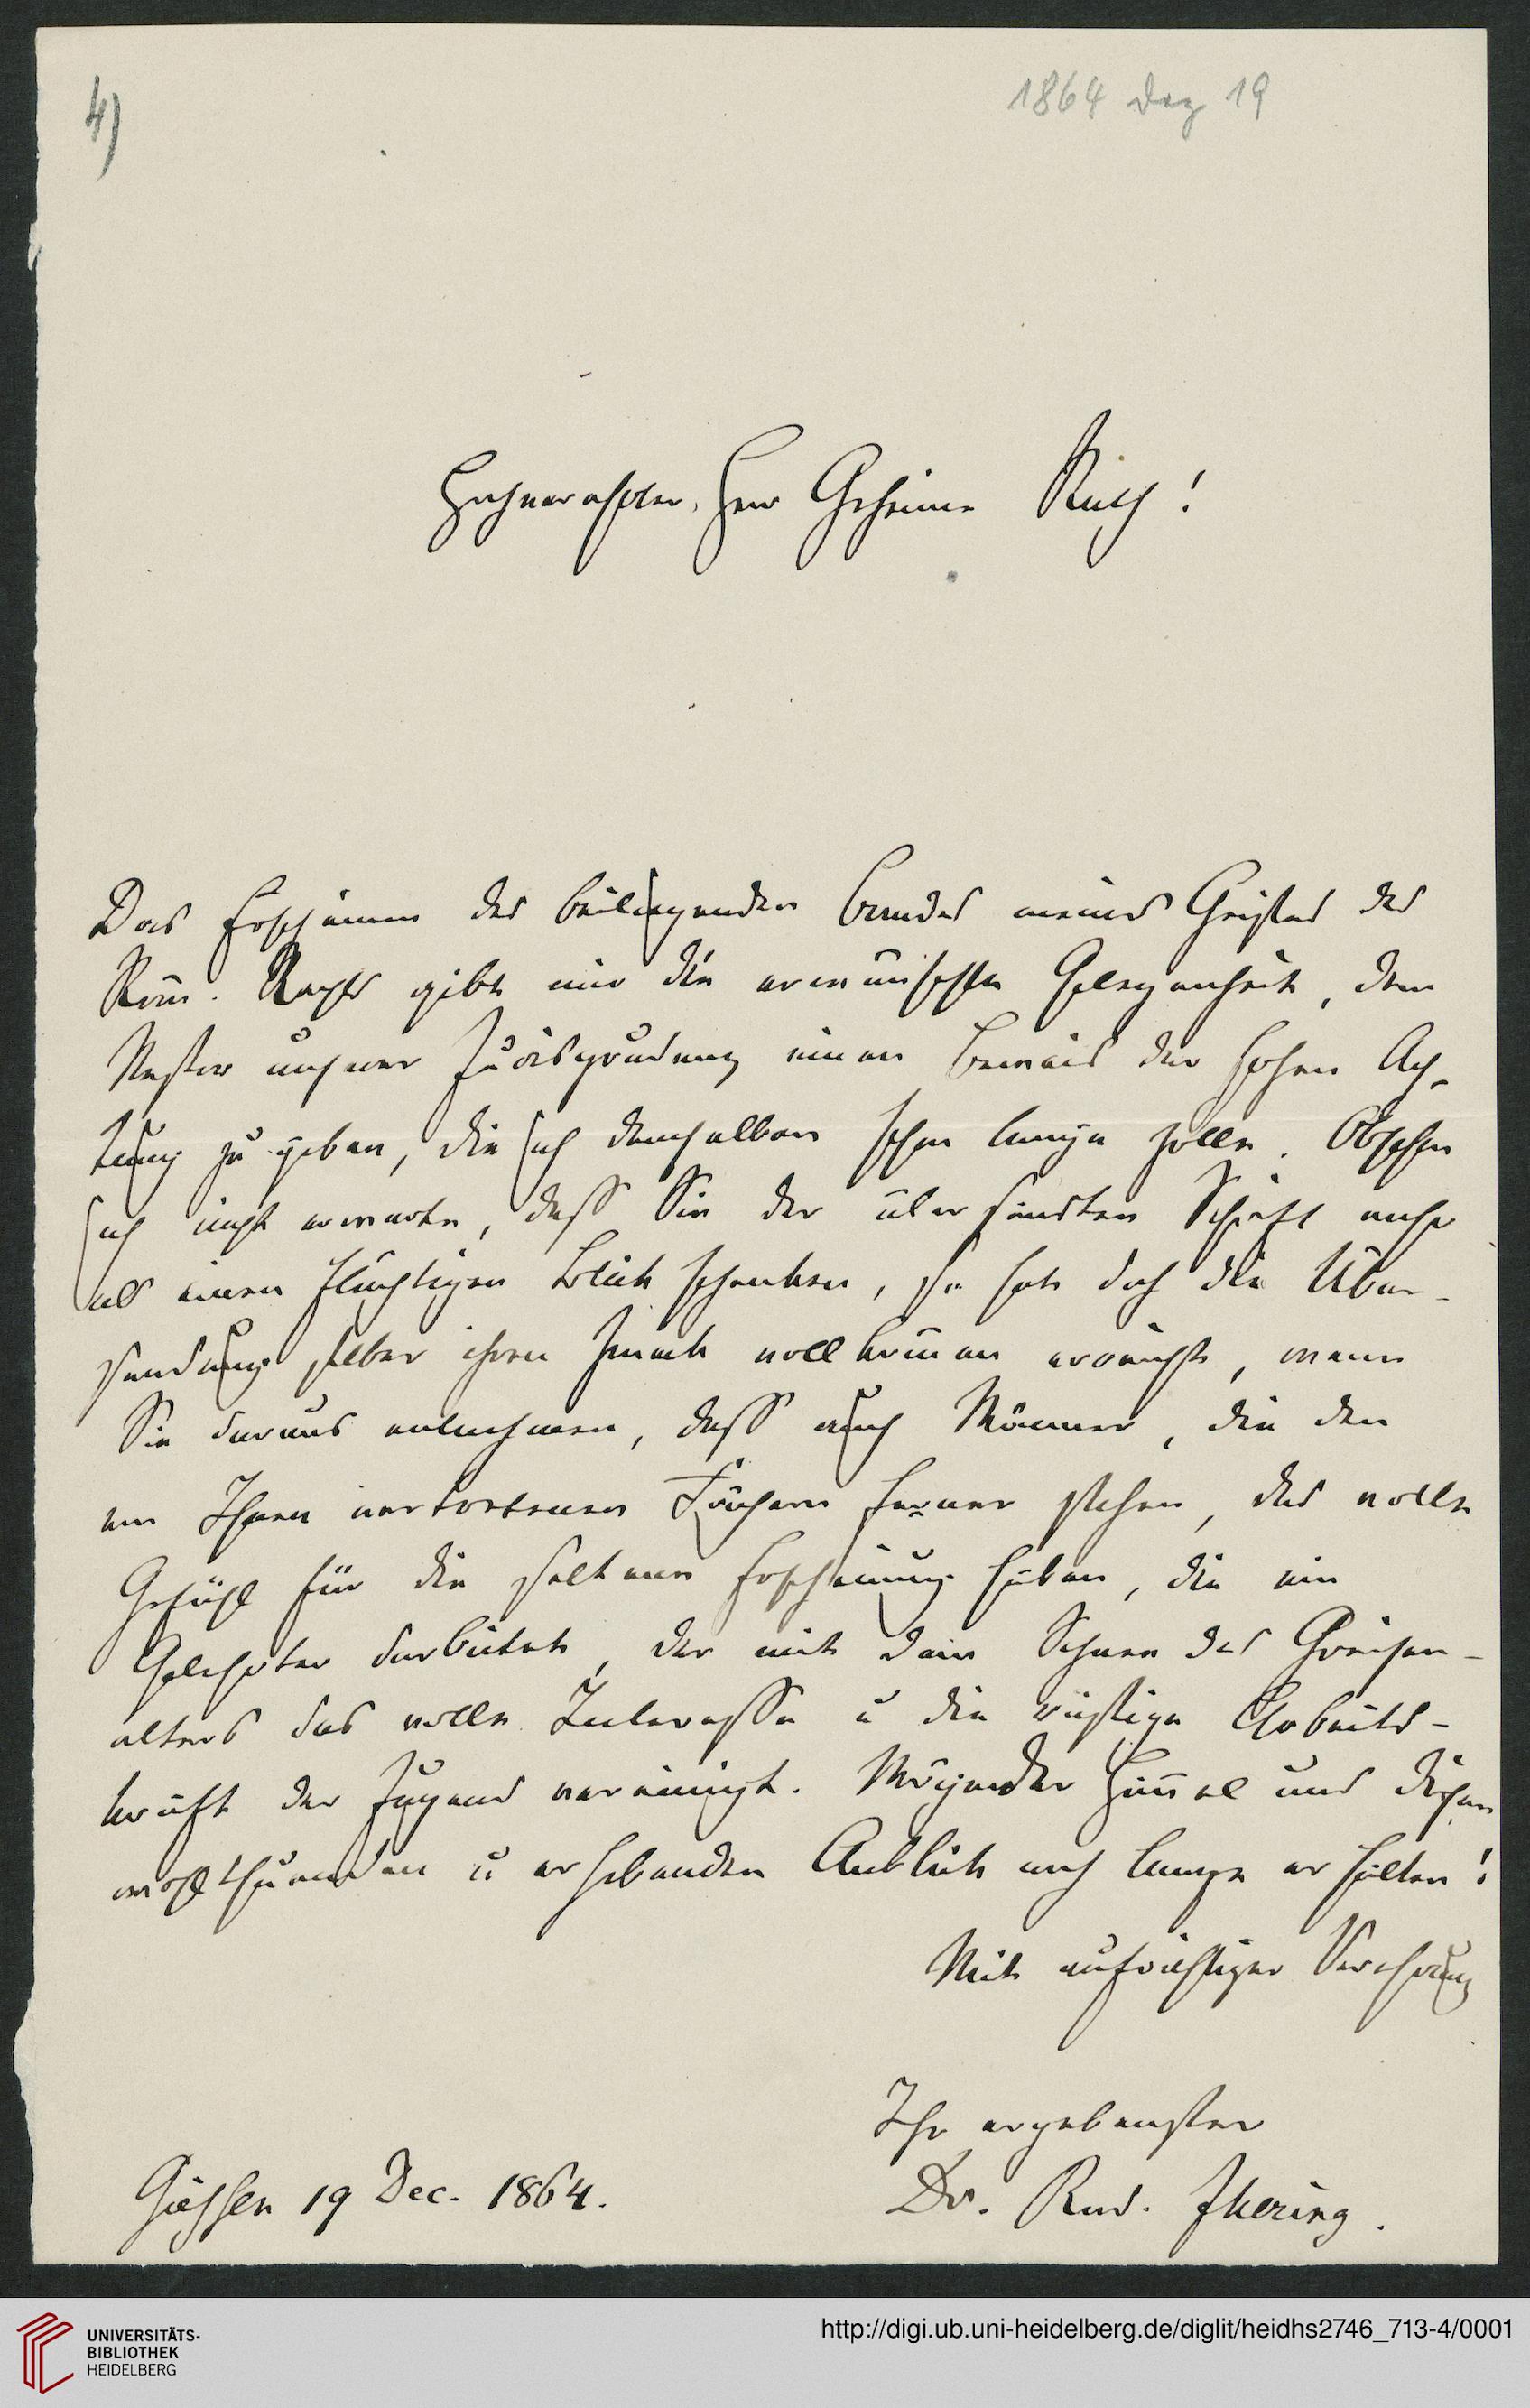 4)
1864 Dez 19
Hochverehrter Herr Geheime Rath!
Das Erscheinen des beiliegenden Bandes meines Geistes des
Röm. Rechts gibt mir die erwünschte Gelegenheit, dem
Nestor unsrer Jurisprudenz einen Beweis der hohen Ach-
tung zu geben, die ich demselben schon lange zolle. Obschon
ich nicht erwarte, dass Sie der übersandten Schrift mehr
als einen flüchtigen Blick schenken, so hat doch die Über-
sendung selber ihren Zweck vollkom̄en erreicht, wenn
Sie daraus entnehmen, dass auch Männer, die den
von Ihnen vertretenen Fächern ferner stehen, das volle
Gefühl für die seltenen Erscheinung haben, die ein
Gelehrter darbietet, der mit dem Schnee des Greisen-
alters das volle Interesse u die rüstige Arbeits-
kraft der Jugend vereinigt. Möge der Him̄el uns diesen
wohlthuenden u erhebenden Anblick noch lange erhalten!
Mit aufrichtiger Verehrung
Ihr ergebenster
Giessen 19 Dec. 1864.
Dr. Rud. Jhering.
UNIVERSITÄTS-
BIBLIOTHEK
HEIDELBERG
http://digi.ub.uni-heidelberg.de/diglit/heidhs2746_713-4/0001